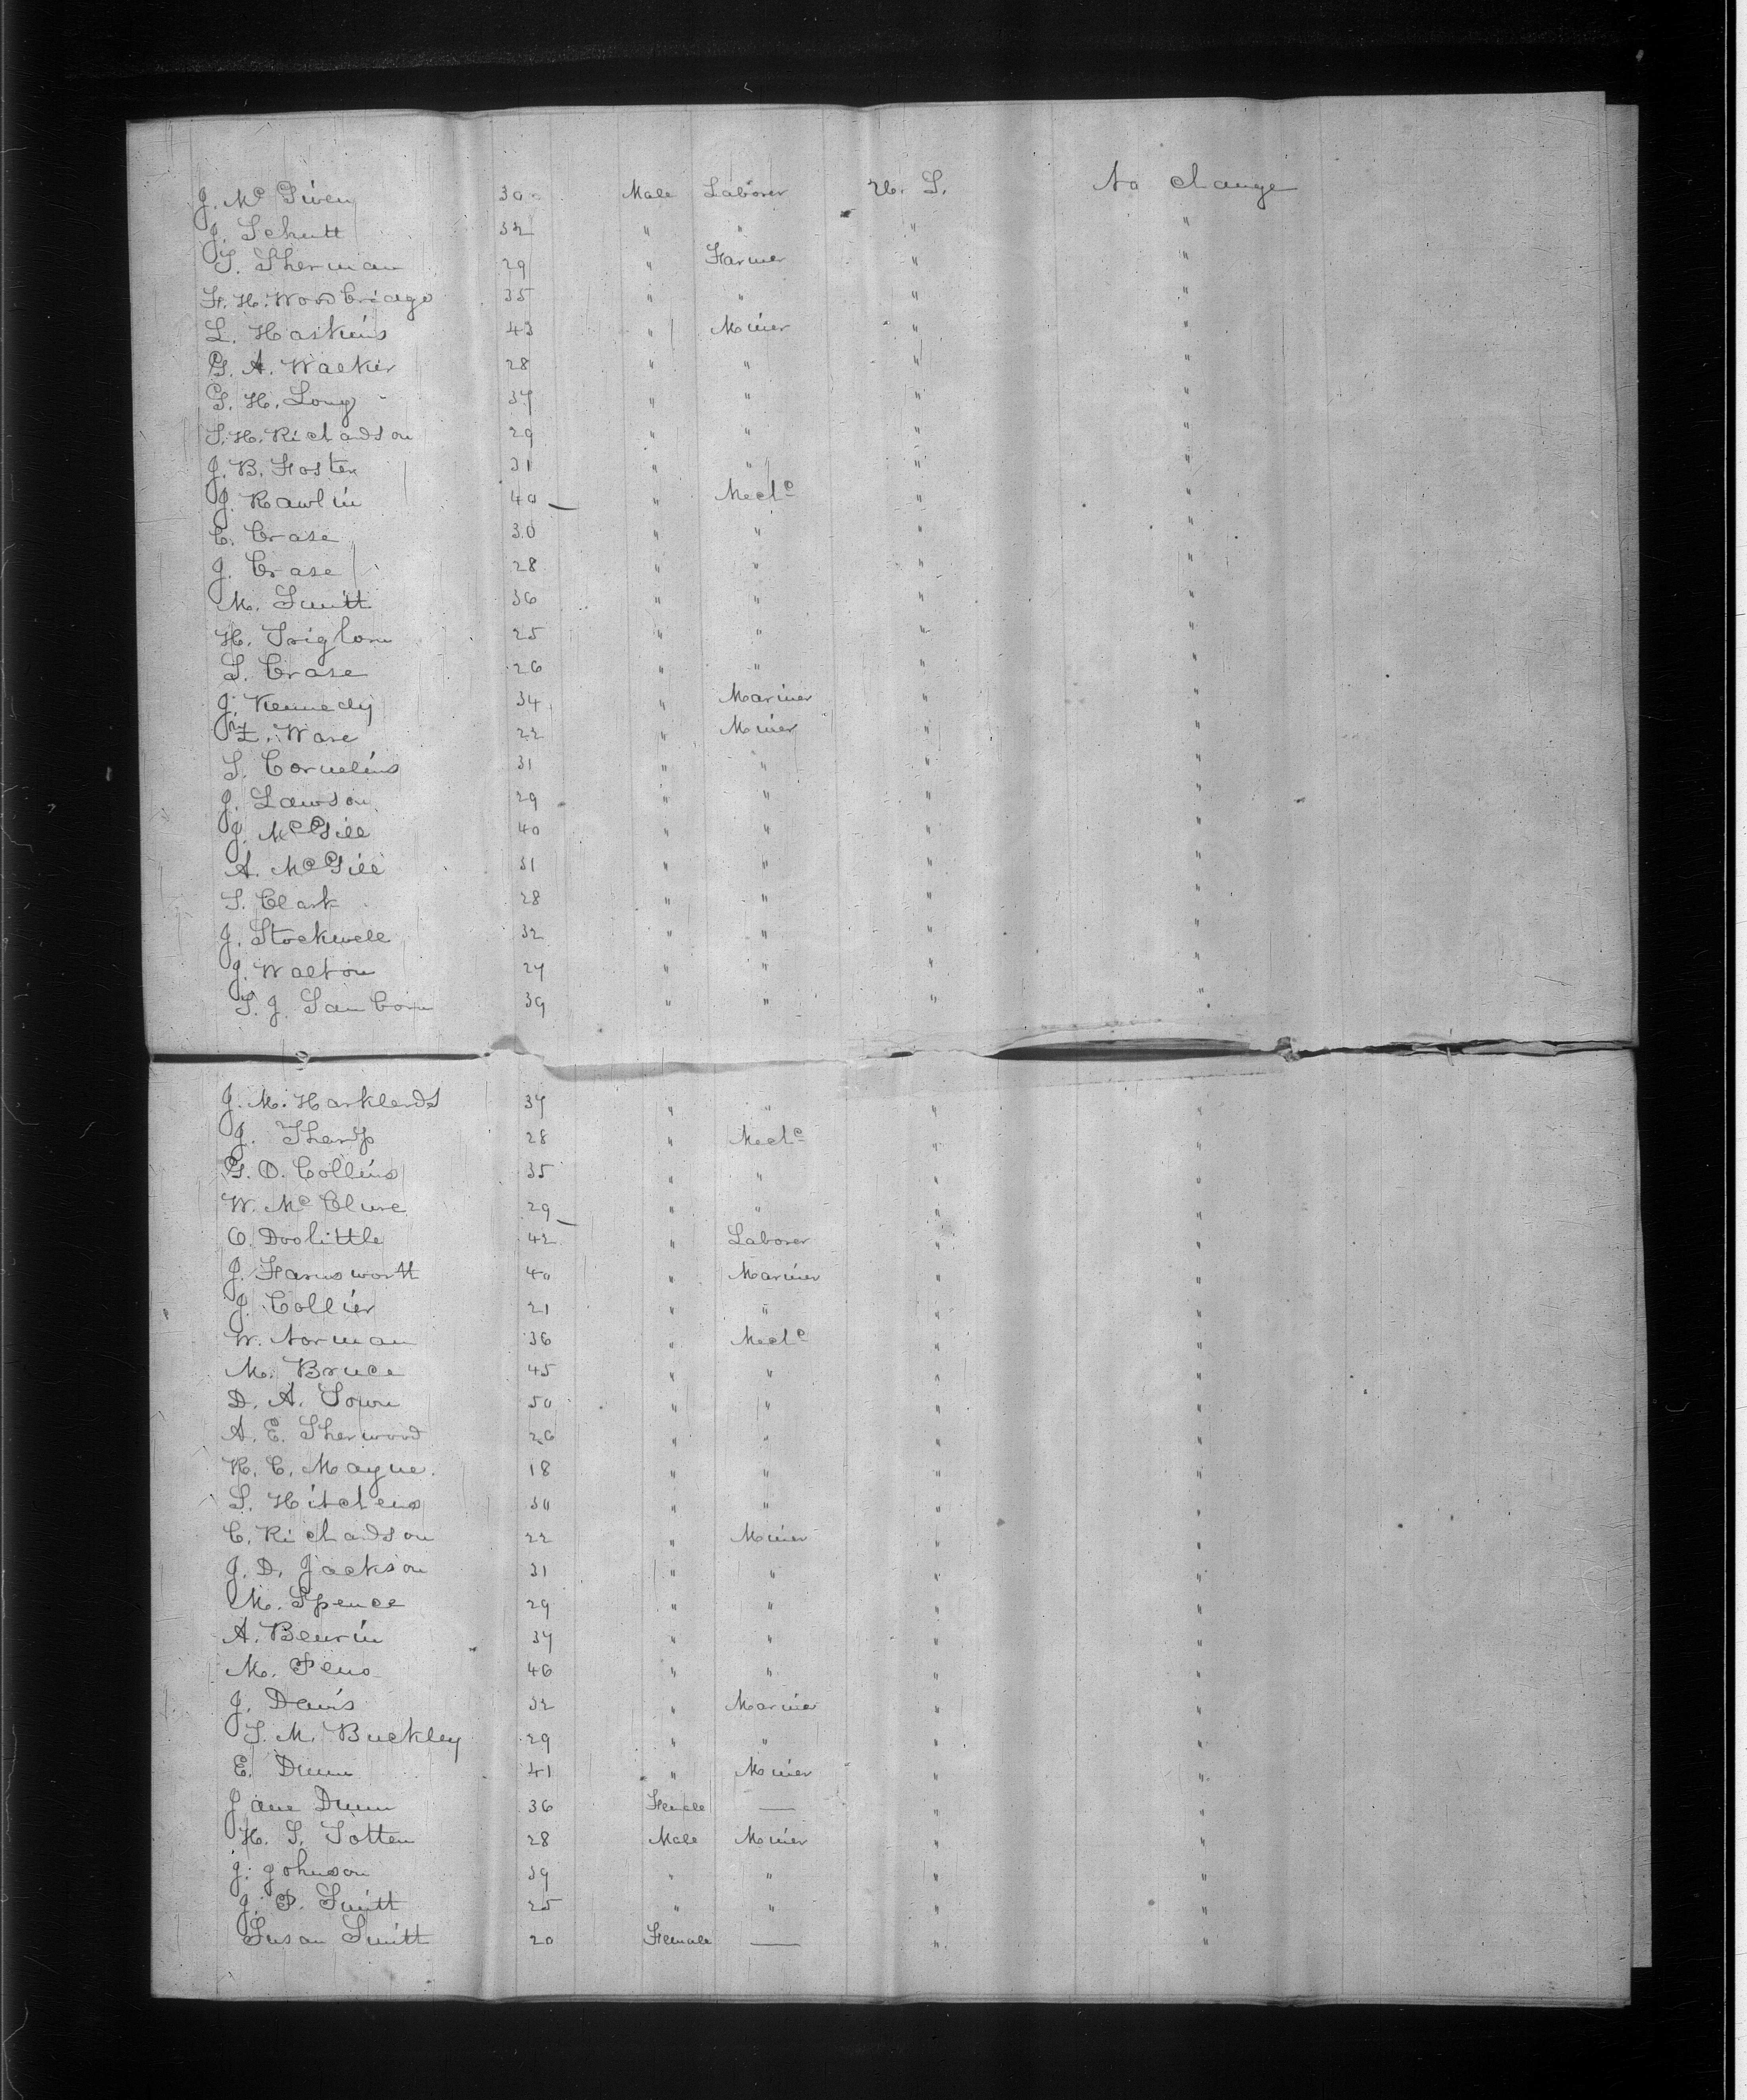 J. McGiven 30 Male Laborer U. S. No change
J. Schutt 32 " " " "
S. Sherman 29 " Farmer " "
F. H. Woodbridge 35 " " " "
L. Haskins 43 " Miner " "
G. A. Walker 28 " " " "
G. H. Long 37 " " " "
S. H. Richardson 29 " " " "
J. B. Foster 31 " " " "
J. Rawlin 40 " Mechc " "
C. Crase 30 " " " "
J. Crase 28 " " " "
M. Smith 36 " " " "
H. 25 " " " "
S. Crase 26 " " " "
J. Kennedy 34 " Mariner " "
Ware 22 " Miner " "
S. Cornelius 31 " " " "
J. Lawson 29 " " " "
J. McGill 40 " " " "
A. McGill 31 " " " "
S. Clark 28 " " " "
J. Stockwell 32 " " " "
J. Walton 27 " " " "
S. J. Sanborn 39 " " " "
J. M. 37 " " " "
J. Tharp 28 " Mechc " "
G. O. Collins 35 " " " "
W. McClure 29 " " " "
O. Doolittle 42 " Laborer " "
J. Farnsworth 40 " Mariner " "
J. Collier 21 " " " "
W. Norman 36 " Mechc " "
M. Bruce 45 " " " "
D. A. Town 50 " " " "
A. E. Sherwood 26 " " " "
H. C. Mayne. 18 " " " "
S. Hitchens 30 " " " "
C. Richardson 22 " Miner " "
J. D. Jackson 31 " " " "
M. Spence 29 " " " "
A. 37 " " " "
M. 46 " " " "
J. Davis 32 " Mariner " "
S. M. Buckley 29 " " " "
E. Dunn 41 " Miner " "
Jane Dunn 36 Female — " "
H. S. Totten 28 Male Miner " "
J. Johnson 39 " " " "
J. P. Smith 25 " " " "
Susan Smith 20 Female — " "